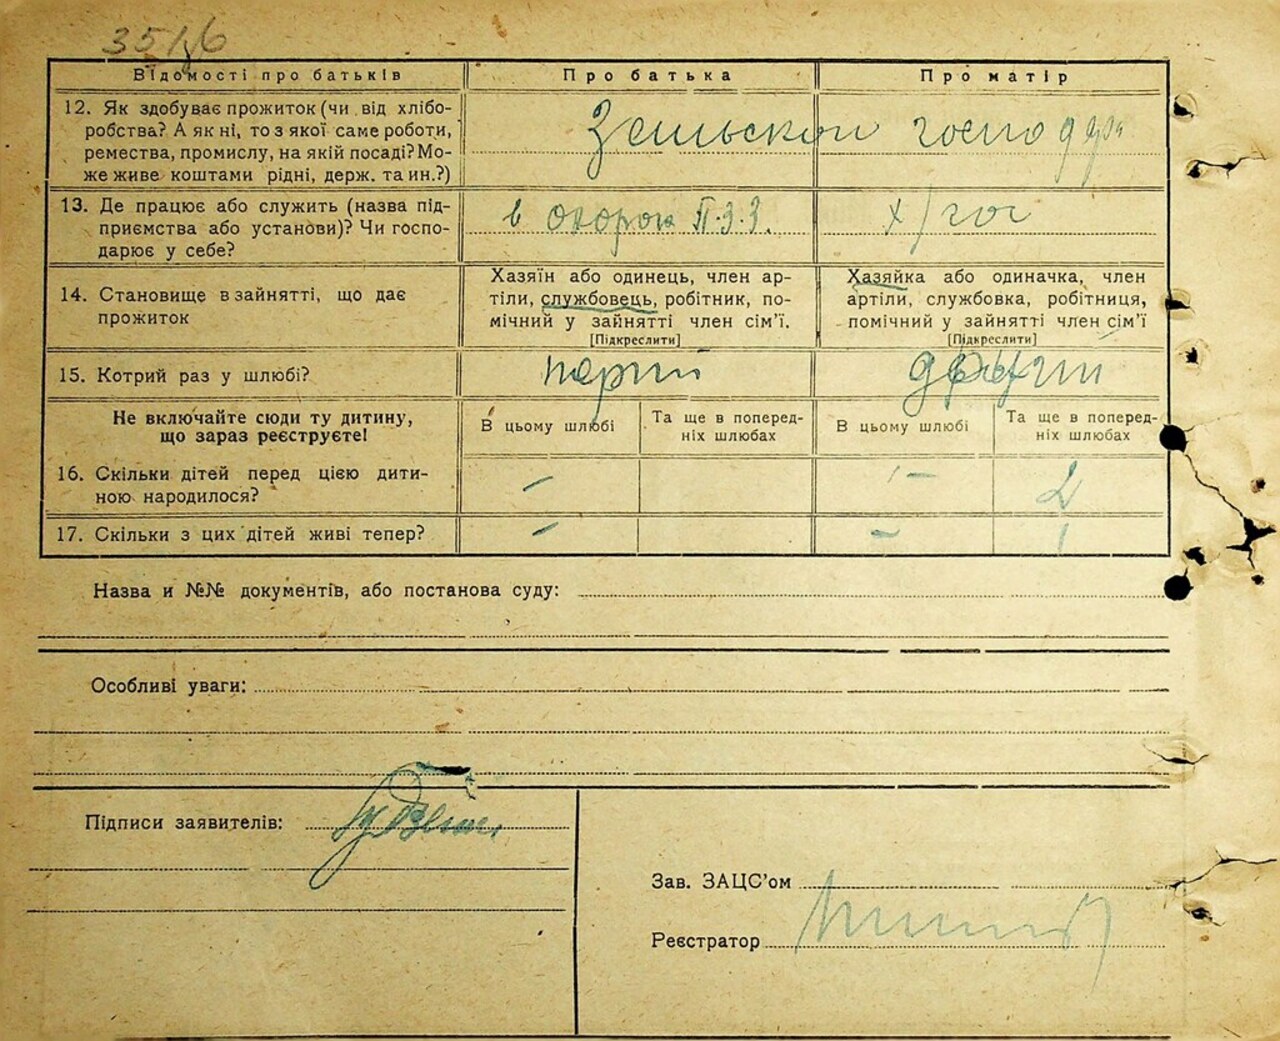 Відомості про батьків
Про батька
Про матір
12. Як здобуває прожиток (чи від хлібо-
робства? А як ні, то з якої саме роботи,
ремества, промислу, на якій посаді? Мо-
же живе коштами рідні, держ. та ин.?)
13. Де працює або служить (назва під-
приємства або установи)? Чи госпо-
дарює у себе?
в охороне П.З.З.
х/гос
14. Становище в зайнятті, що дає
прожиток
Хазяїн або одинець, член ар-
тіли, службовець, робітник, по-
мічний у зайнятті член сім'ї.
[Підкреслити]
Хазяйка або одиначка, член
артіли, службовка, робітниця,
помічний у зайнятті член сім'ї
[Підкреслити]
15. Котрий раз у шлюбі?
перший
другий
Не включайте сюди ту дитину,
що зараз реєструєте!
В цьому шлюбі
Та ще в поперед-
ніх шлюбах
В цьому шлюбі
Та ще в поперед-
ніх шлюбах
16. Скільки дітей перед цією дити-
ною народилося?
–
–
2
17. Скільки з цих дітей живі тепер?
–
–
1
Назва и №№ документів, або постанова суду:
Особливі уваги:
Підписи заявителів:
Зав. ЗАЦС'ом
Реєстратор